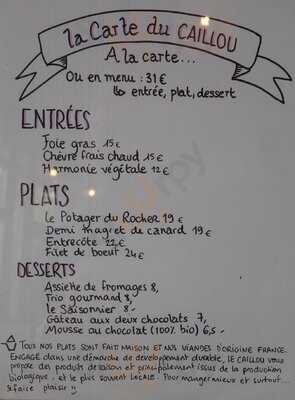 la Carte du CAILLOU
A la carte...
Ou en menu : 31€
↳ entrée, plat, dessert
ENTRÉES
Foie gras 15€
Chèvre frais chaud 15€
Harmonie végétale 12€
PLATS
le Potager du Rocher 19€
Demi magret de canard 19€
Entrecôte 22€
Filet de boeuf 24€
DESSERTS
Assiette de fromages 8,
Trio gourmand 8,
le Saisonnier 8-
Gâteau aux deux chocolats 7,
Mousse au chocolat (100% bio) 6,5-
TOUS NOS PLATS SONT FAIT MAISON ET NOS VIANDES D'ORIGINE FRANCE.
ENGAGÉ dans une démarche de développement durable, LE CAILLOU vous
propose des produits de saison et principalement issus de la production
biologique, et le plus souvent LOCALE. Pour manger mieux et surtout...
se faire plaisir !!